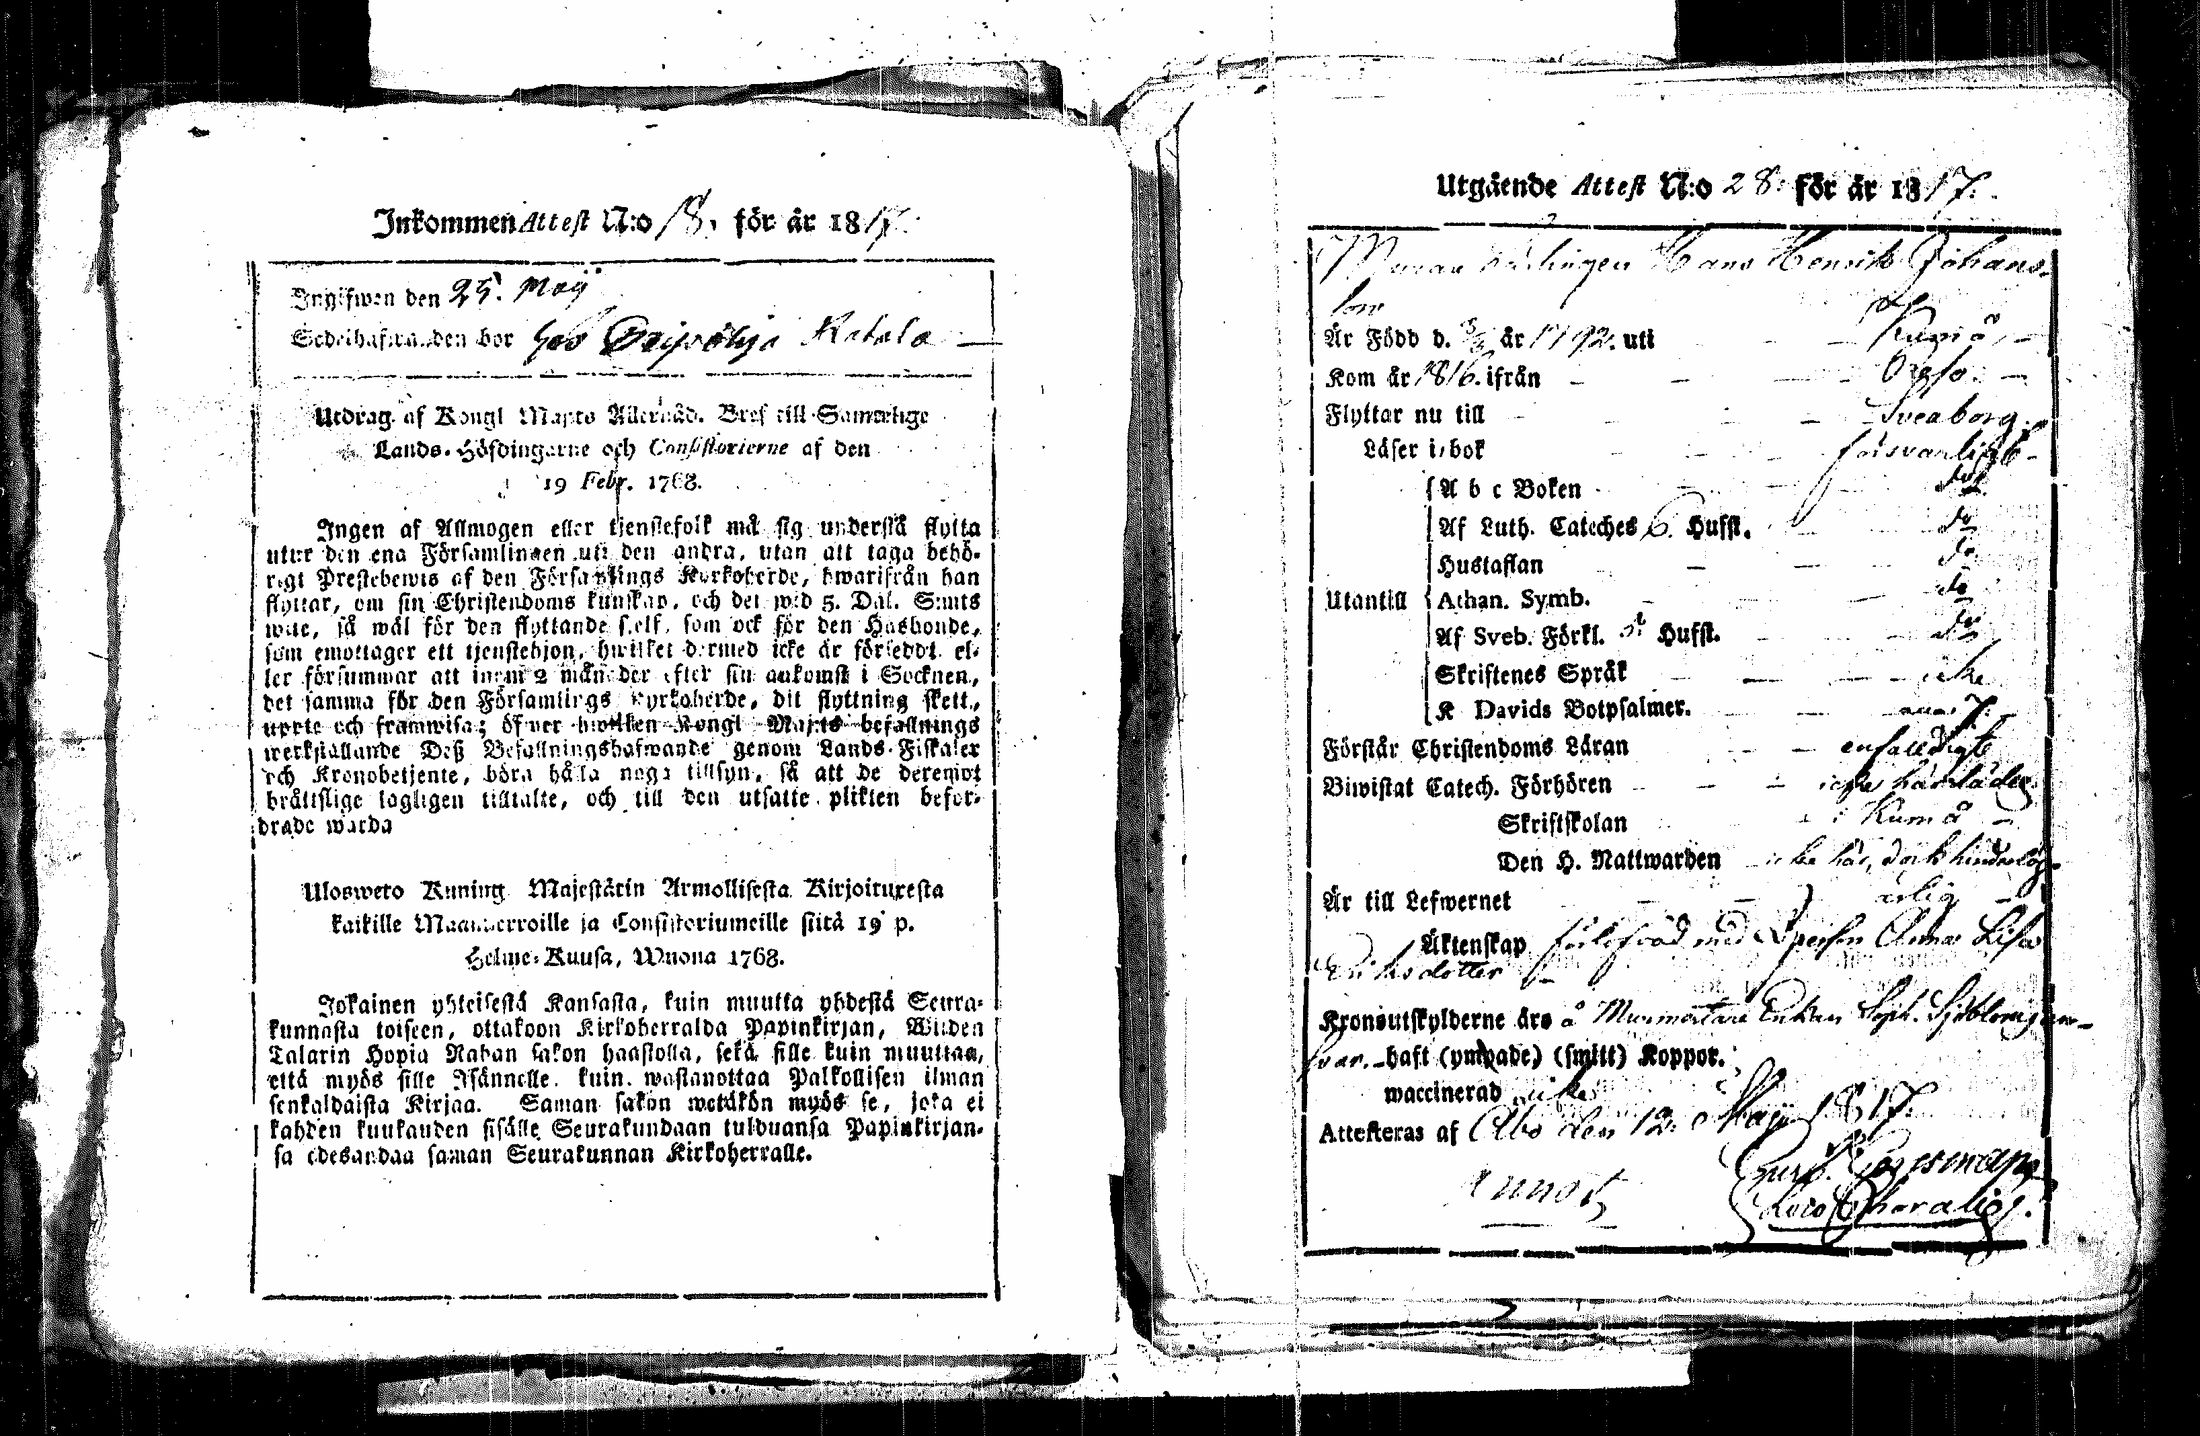 Inkommen Attest N:o 18. för år 1817.
Ingifwen den 25. Maij
Sedelhafwanden bor hos
Utdrag af Kongl Majets Allernåd. Bref till Samtelige
Lands-Höfdingarne och Consistorierne af den
19 Febr. 1768.
Ingen af Allmogen eller tjenstefolk må sig understå flytta
utur den ena Församlingen uti den andra, utan att taga behö-
rigt Prestebewis af den Församlings Kyrkoherde, hwarifrån han
flyttar, om sin Christendoms kunskap, och det wid 5. Dal. S:mts
wite, så wäl för den flyttande sielf, som ock för den Husbonde,
som emottager ett tjenstehjon, hwilket dermed icke är försedt, el-
ler försummar att inom 2 månader efter sin ankomst i Socknen,
det samma för den Församlings Kyrkoherde, dit flyttning skett,
uppte och framwisa; öfwer hwilken Kongl Majets befallnings
werkställande Deß Befallningshafwande genom Lands-Fiskaler
och Kronobetjente, böra hålla noga tillsyn, så att de deremot
bråttslige lagligen tilltalte, och till den utsatte plikten befor-
drade warda
Ulosweto Kuning Majestätin Armollisesta Kirjoituxesta
kaikille Maanherroille ja Consistoriumeille siitä 19 p.
Helme-Kuusa, Wuona 1768.
Jokainen yhteisestä Kansasta, kuin muutta yhdestä Seura-
kunnasta toiseen, ottakoon Kirkoherralda Papinkirjan, Wiiden
Talarin Hopia Rahan sakon haastolla, sekä sille kuin muuttaa,
että myös sille Isännelle, kuin wastanottaa Palkollisen ilman
senkaldaista Kirjaa. Saman sakon wetäkön myös se, joka ei
kahden kuukauden sisälle Seurakundaan tulduansa Papinkirjan-
sa edesandaa saman Seurakunnan Kirkoherralle.
Utgående Attest N:o 28. för år 1817.
Hans Henrik Johans-
son
Är Född d. år 1792. uti Kumå
Kom år 1816. ifrån
Flyttar nu till Sveaborg
Läser i bok försvarligt
A b c Boken do
Af Luth. Cateches 6. Hufst. do
Hustaflan do
Utantill Athan. Symb. do
Af Sveb. Förkl. 5. Hufst. do
Skriftenes Språk icke
K Davids Botpsalmer. 7.
Förstår Christendoms Läran enfaldigt
Biwistat Catech. Förhören
Skriftskolan i Kumå
Den H. Nattwarden icke här, dock hinderlös
Är till Lefwernet ärlig
Äktenskap förlofvad med Anna Lisa
Eriksdotter
Kronoutskylderne äro å Murmästare Enkan Soph. Sjöbloms an-
svar. haft (ympade) (smitt) Koppor.
waccinerad icke
Attesteras af Åbo den 12. Maji 1817.